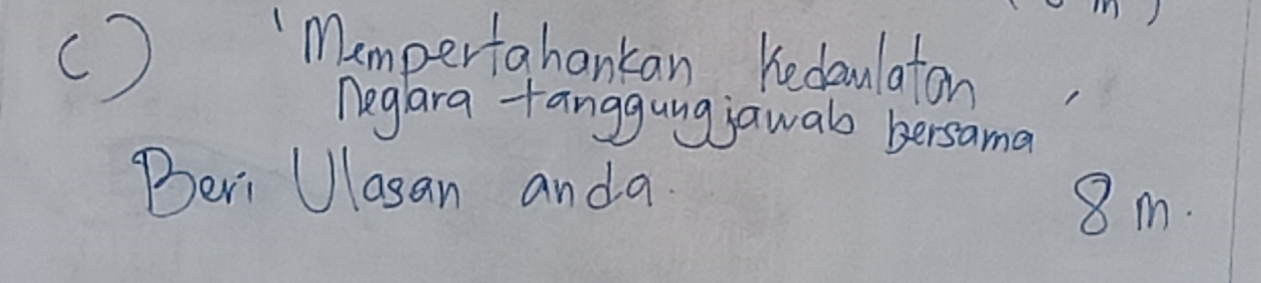 m )
c) 'Mempertahankan Kedaulatan
negara tanggungjawab bersama '
Beri Ulasan anda.
8 m.